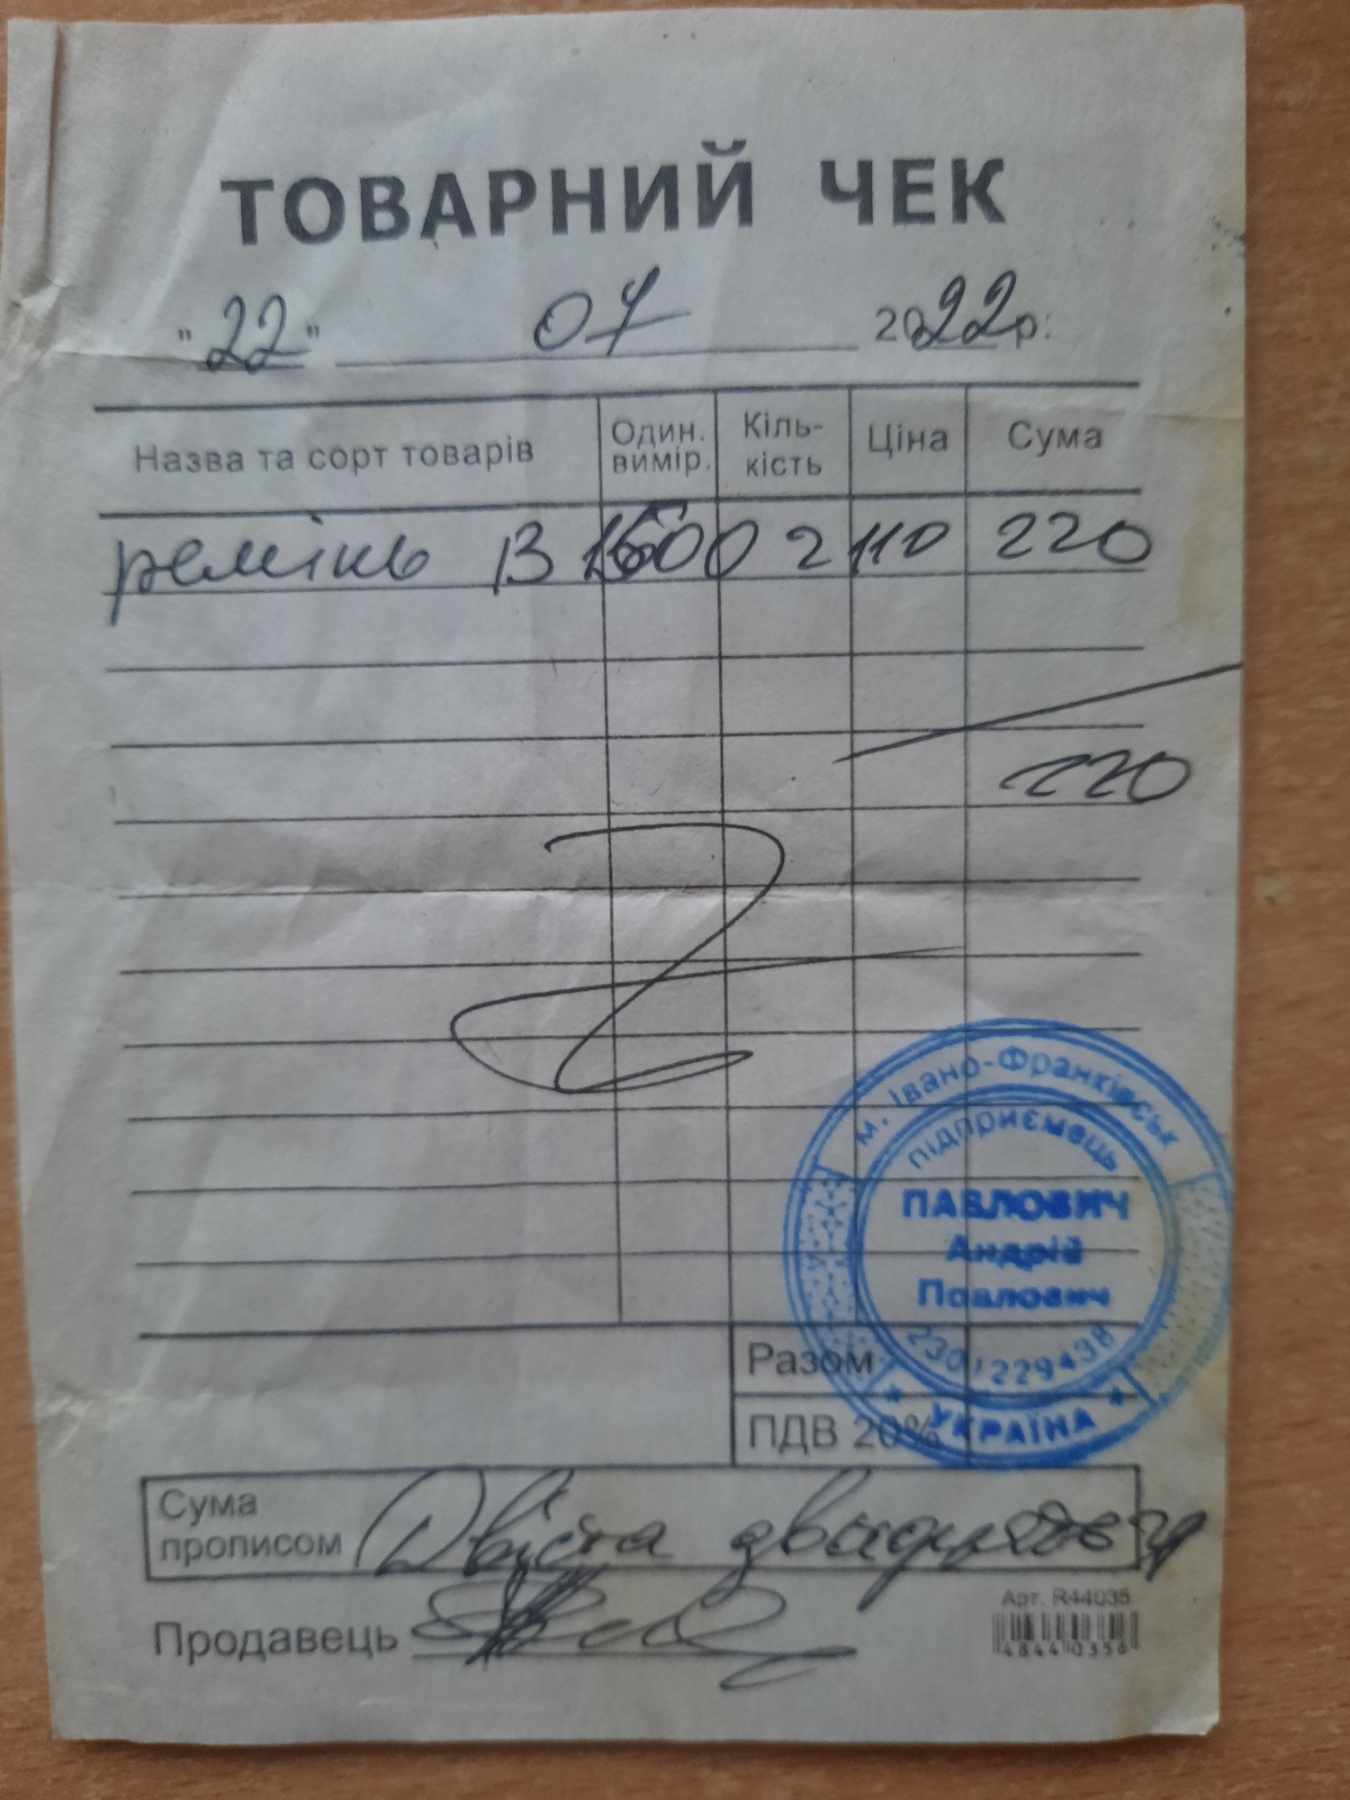 ТОВАРНИЙ ЧЕК
"22" 07 2022р.
Назва та сорт товарів Один. вимір. Кіль- кість Ціна Сума
ремінь В 1600 2 110 220
220
м. Івано-Франківськ
підприємець
ПАВЛОВИЧ
Андрій
Павлович
2301229438
* УКРАЇНА *
Разом
ПДВ 20%
Сума прописом Двіста двадцять
Продавець
Арт. R44035
48440356